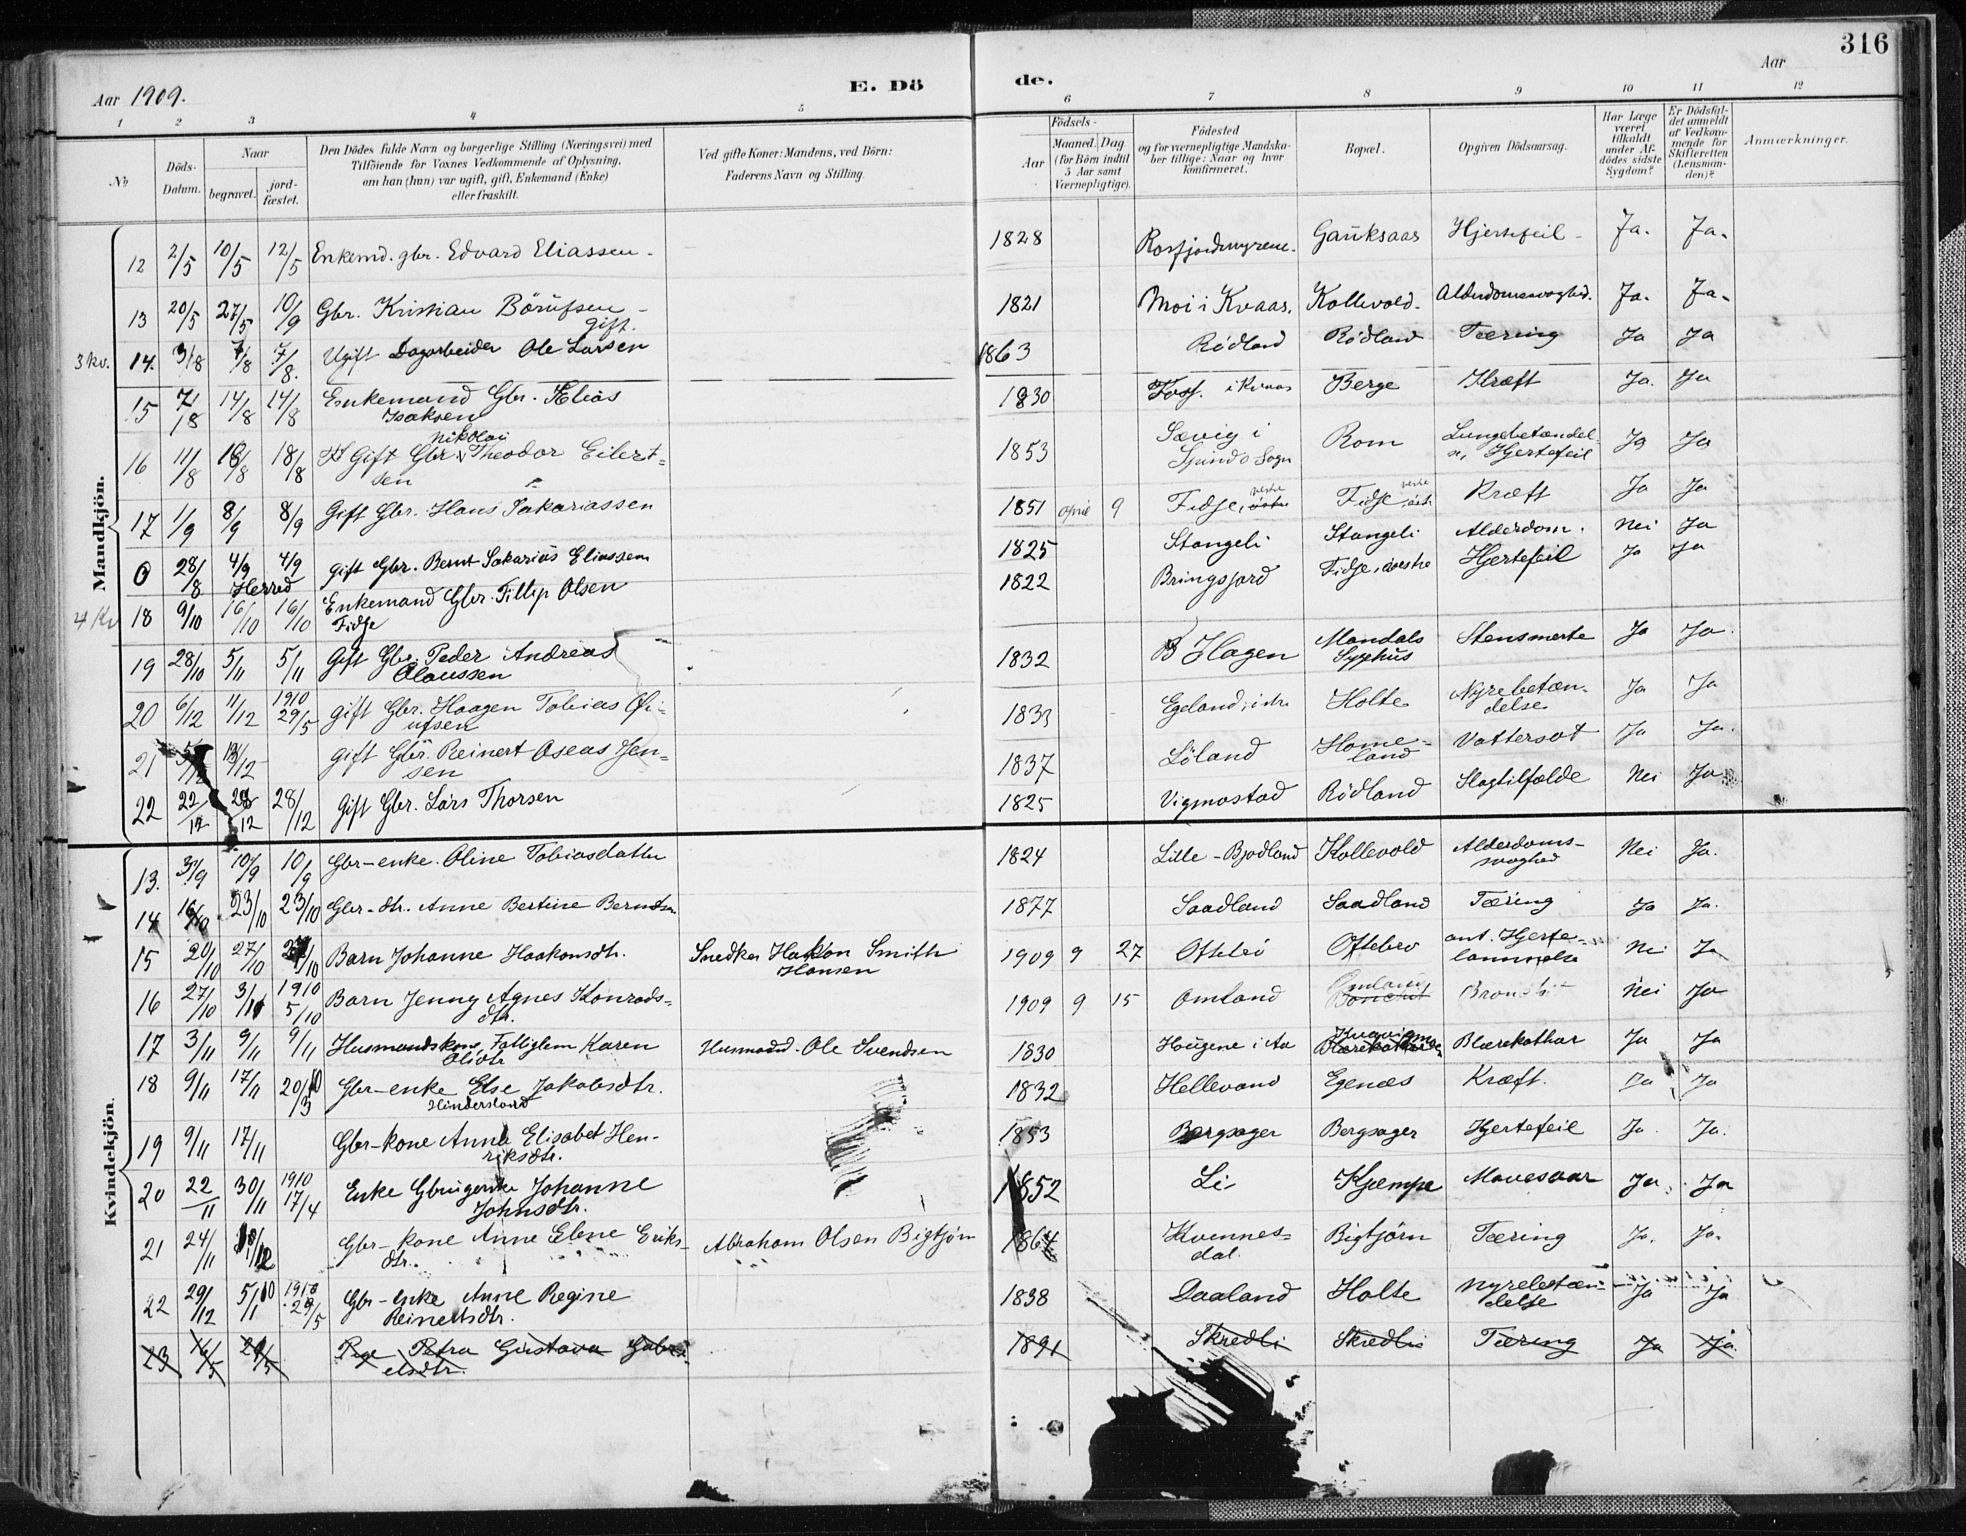 316
Aar 1909.
E. Dö
de.
Aar
1 2 3 4 5 6 7 8 9 10 11 12
No
Döds-Datum.
Naar
begravet.
jord-fæstet.
Den Dödes fulde Navn og borgerlige Stilling (Næringsvei) med
Tilföiende for Voxnes Vedkommende af Oplysning,
om han (hun) var ugift, gift, Enkemand (Enke)
eller fraskilt.
Ved gifte Koner: Mandens, ved Börn:
Faderens Navn og Stilling.
Födsels-
Aar
Maaned. Dag
(for Börn indtil
5 Aar samt
Værnepligtige).
Födested
og for værnepligtige Mandska-
ber tillige: Naar og hvor
konfirmeret.
Bopæl.
Opgiven Dödsaarsag.
Har Læge
været
tilkaldt
under Af-
dödes sidste
Sygdom?
Er Dödsfal-
det anmeldt
af Vedkom-
mende for
Skifteretten
(Lensman-
den)?
Anmærkninger.
Mandkjön.
12 2/5 10/5 12/5 Enkemd. gbr. Edvard Eliassen. 1828 Rosfjordmyrene. Gauksaas Hjertefeil Ja. Ja.
13 20/5 27/5 10/9 Gbr. Kristian Börufsen 1821 Moi i Kvaas. Kollevold. Alderdomssvaghed. Ja. Ja.
gift.
3 kv. 14. 3/8 7/8 7/8. Ugift Dagarbeider Ole Larsen 1863 Rödland Rödland Tæring Ja Ja
15 7/8 14/8 14/8 Enkemand Gbr. Elias 1830 i Kvaas Berge Kræft Ja. Ja
Isaksen
Nikolai
16 11/8 18/8 18/8 Gift Gbr. Theodor Eilert- 1853 Sævig i Rom Lungebetændel- Ja Ja
sen Spinds Sogn Hjertefeil
17 1/9 8/9 8/9 Gift Gbr. Hans Sakariassen 1851 April 9 Fidje, vestre Fidje, vestre Kræft Ja Ja
0 28/8 4/9 4/9 Gift Gbr. Bernt Sakarias Eliassen 1825 Stangeli Stangeli Alderdom. Nei Ja
Herred
4 Kv 18 9/10 16/10 16/10 Enkemand Gbr. Fillip Olsen 1822 Bringsjord Fidje Hjertefeil Ja Ja
Fidje
19 28/10 5/11 5/11 Gift Gbr. Peder Andreas 1832 Hagen Mandals Stensmerte Ja Ja.
Olaussen Sygehus
20 6/12 11/12 1910 29/5 Gift Gbr. Haagen Tobias 1833 Egeland Holte Nyrebetæn- Ja Ja
ufsen delse
21 5/12 13/12 Gift Gbr. Reinert Oseas Jen- 1837 Löland Home- Vattersot Ja Ja.
sen land
22 22/12 28/12 28/12 Gift Gbr. Lars Thorsen 1825 Vigmostad Rödland Slagtilfælde Nei Ja
Kvindekjön.
13. 3/9 10/9 10/9 Gbr-enke. Oline Tobiasdatter 1824 Lille-Bjodland Kollevold Alderdoms- Nei Ja.
svaghed
14 16/10 23/10 23/10 Gbr-dtr. Anne Bertine 1877 Saadland Saadland Tæring Ja Ja.
15 20/10 27/10 27/10 Barn Johanne Haakonsdtr. Snedker Haakon Smith 1909 9 27 Oftebro Oftebro ant. Hjerte- Nei Ja
Hansen lammelse
16 27/10 3/11 1910 5/10 Barn Jenny Agnes Konrads- 1909 9 15 Omland Omland Bronchit Nei Ja
dtr.
17 3/11 9/11 9/11 Husmandskone, Fattiglem Karen Husmand. Ole Svendsen 1830 Haugene i Aa Blærekathar Ja Ja
Olsdtr
18 9/11 17/11 20/3 10 Gbr-enke Else Jakobsdtr. 1832 Hellevand Egenæs Kræft. Ja Ja
Hindersland
19 9/11 17/11 Gbr-kone Anna Elisabet Hen- 1853 Bergsager Bergsager Hjertefeil Ja. Ja.
riksdtr.
20 22/11 30/11 1910 17/4 Enke Johanne 1852 Li Kjempe Mavesaar Ja. Ja
Johnsdtr.
21 24/11 Gbr-kone Anne Elene Eriks- Abraham Olsen Bigtjörn 1864 Kvennes- Bigtjörn Tæring Ja. Ja.
dtr. dal.
22 29/12 5/1 10 1910 29/5 Gbr-enke Anne Regine 1838 Daaland Holte Nyrebetæn- Ja Ja
Reinertsdtr. delse
23 16/5 Pige Petra Gustava Gabri- 1891 Skredli Skredli Tæring Ja Ja.
elsdtr.